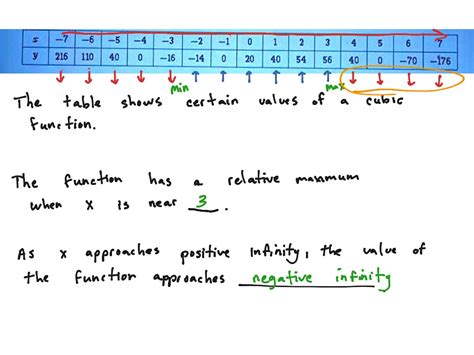 x -7 -6 -5 -4 -3 -2 -1 0 1 2 3 4 5 6 7
y 216 110 40 0 -16 -14 0 20 40 54 56 40 0 -70 -176
min max
The table shows certain values of a cubic
function.
The function has a relative maximum
when x is near 3.
As x approaches positive infinity, the value of
the function approaches negative infinity